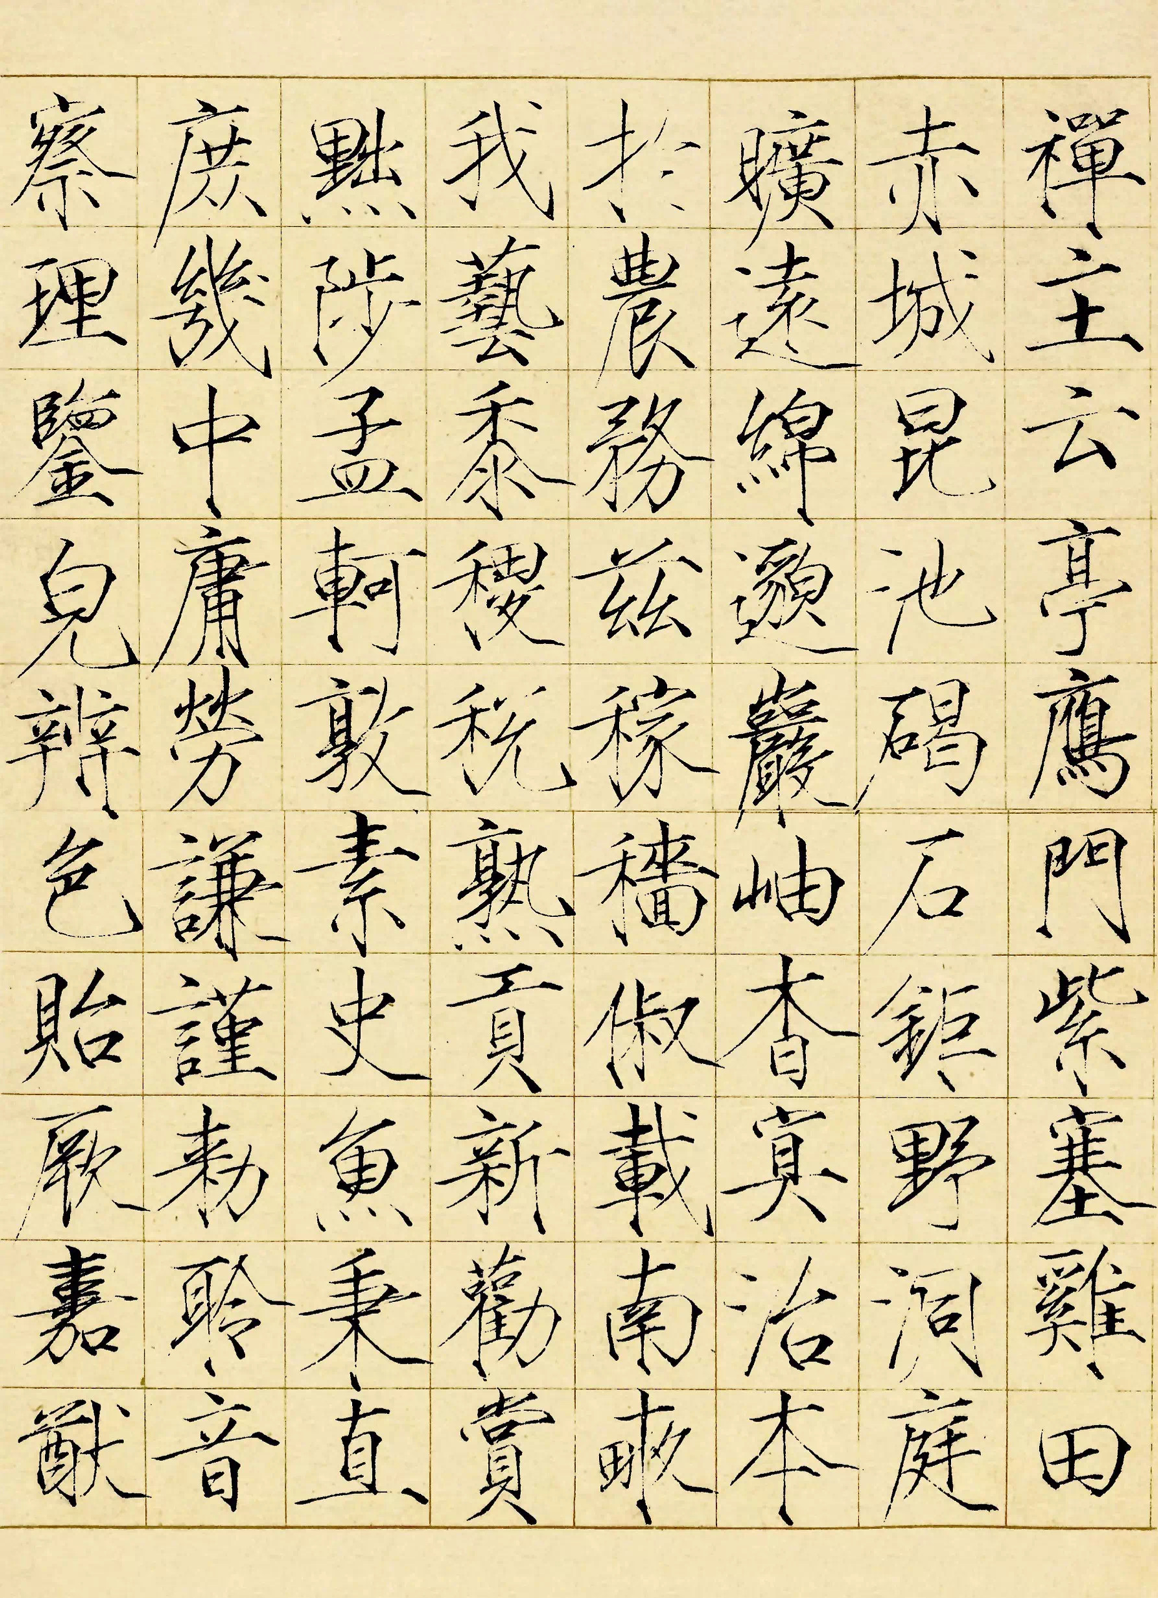 禪主云亭鴈門紫塞雞田
赤城昆池碣石鉅野洞庭
曠遠綿邈巖岫杳冥治本
於農務茲稼穡俶載南畝
我藝黍稷稅熟貢新勸賞
黜陟孟軻敦素史魚秉直
庶幾中庸勞謙謹勑聆音
察理鑒皃辨色貽厥嘉猷